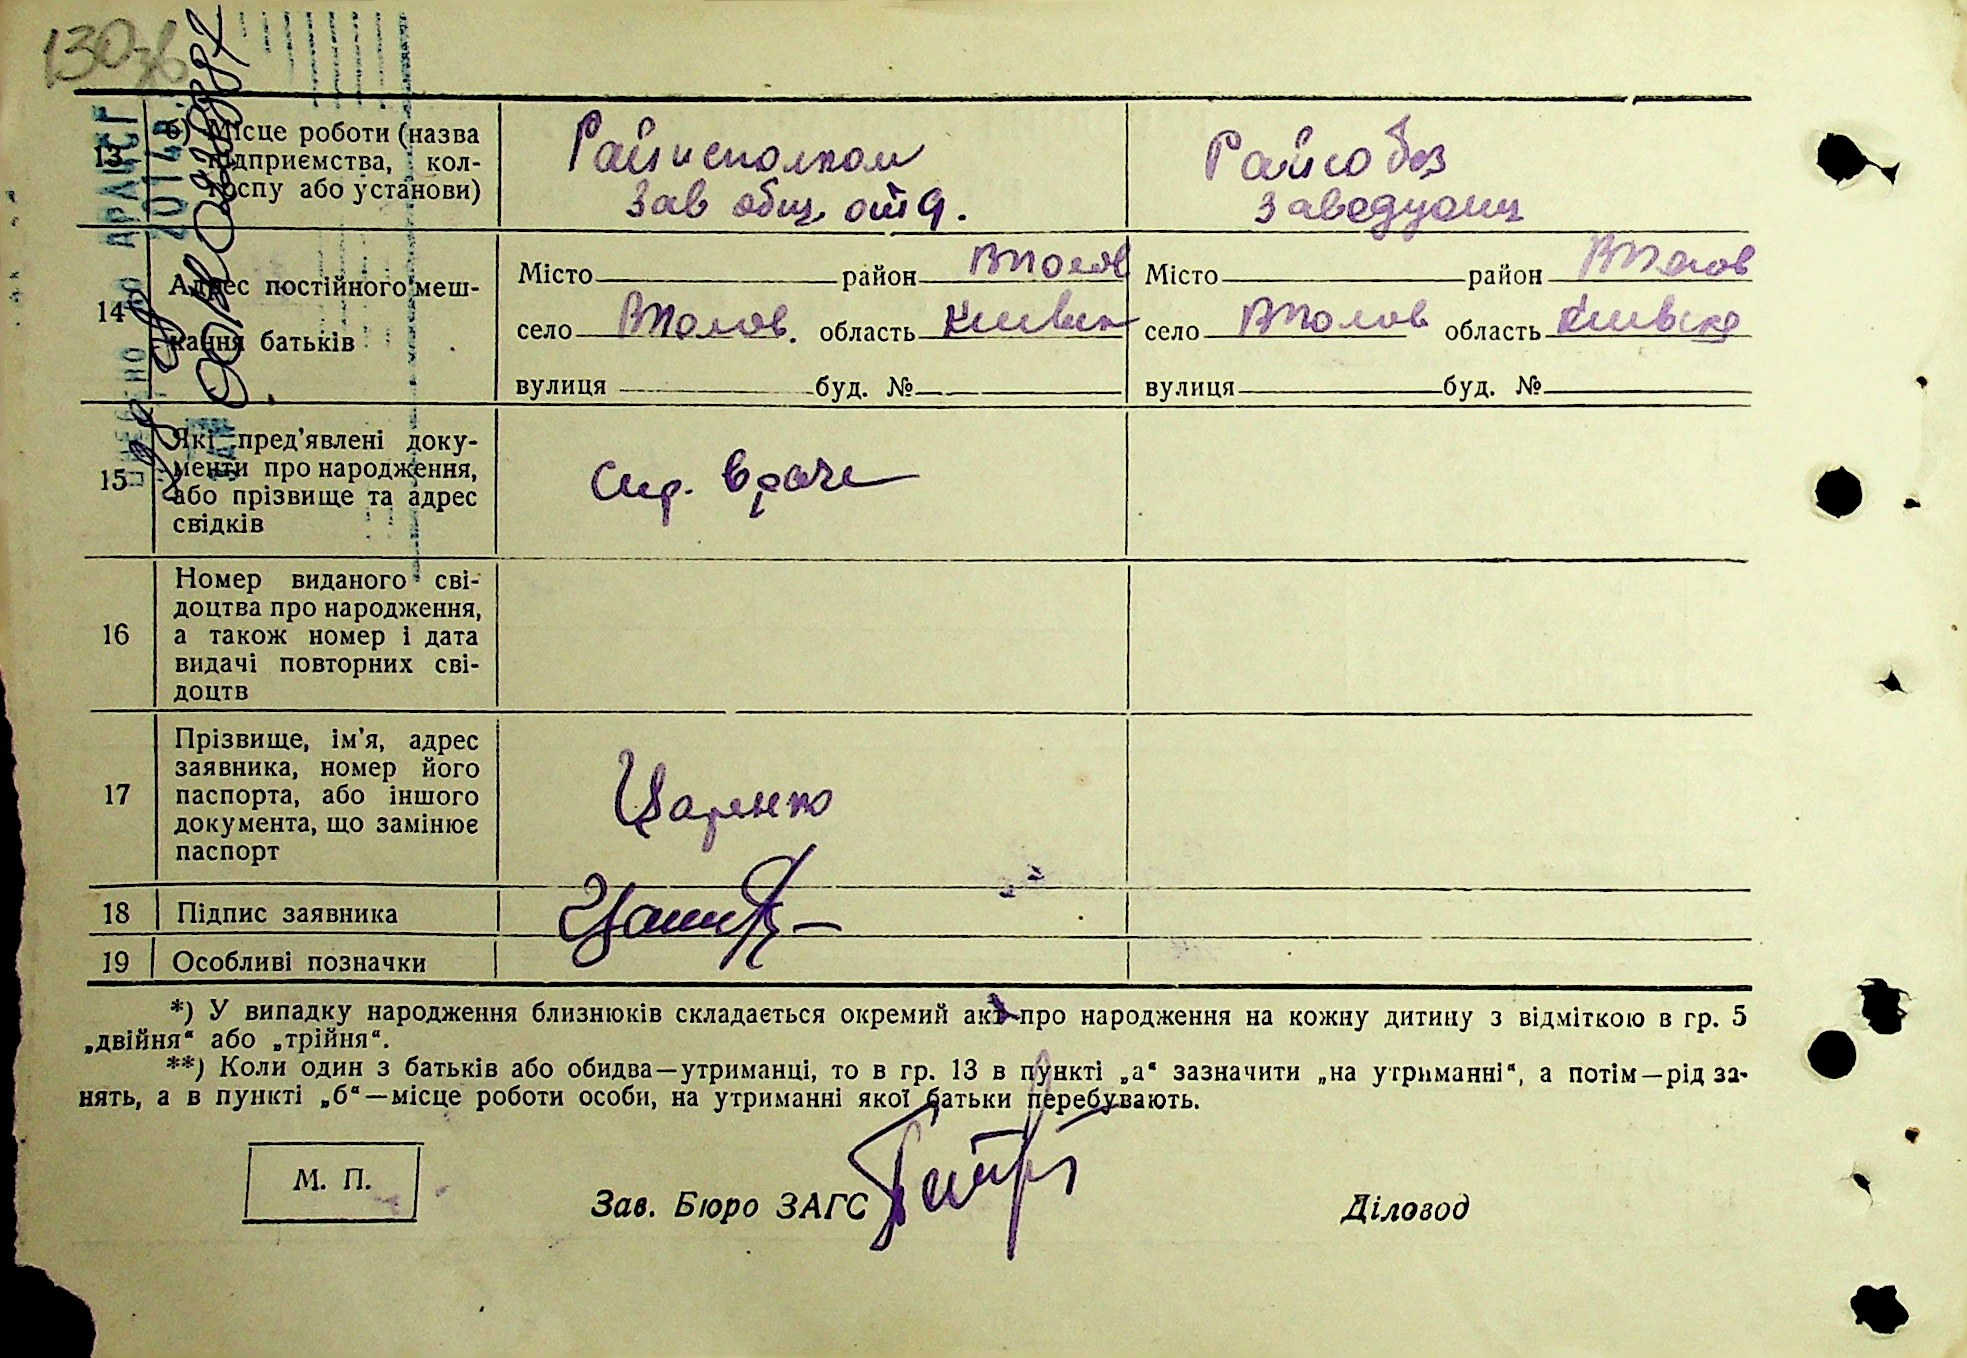 130зв
13
б) Місце роботи (назва
підприємства, кол-
госпу або установи)
Райисполком
Зав общ. отд.
Райсобез
Заведующ
14
Адрес постійного меш-
кання батьків
Місто район
село область Киевск
вулиця буд. №
Місто район
село область Киевска
вулиця буд. №
15
Які пред'явлені доку-
менти про народження,
або прізвище та адрес
свідків
Спр. врача
16
Номер виданого сві-
доцтва про народження,
а також номер і дата
видачі повторних сві-
доцтв
17
Прізвище, ім'я, адрес
заявника, номер його
паспорта, або іншого
документа, що замінює
паспорт
Царенко
18
Підпис заявника
19
Особливі позначки
*) У випадку народження близнюків складається окремий акт про народження на кожну дитину з відміткою в гр. 5
„двійня“ або „трійня“.
**) Коли один з батьків або обидва—утриманці, то в гр. 13 в пункті „а“ зазначити „на утриманні“, а потім—рід за-
нять, а в пункті „б“—місце роботи особи, на утриманні якої батьки перебувають.
М. П.
Зав. Бюро ЗАГС
Діловод